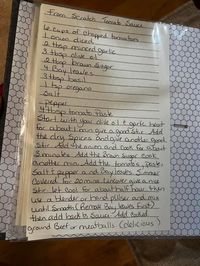 From Scratch Tomato Sauce
6 cups of chopped tomatoes
1 onion diced
2 tbsp minced garlic
3 tbsp olive oil
2 tbsp brown sugar
4 Bay leaves
3 tbsp basil
1 tsp oregano
Salt
pepper
4 tbsp tomato paste
Start with your olive oil & garlic heat
for about 1 min give a good stir. Add
the celery, spices and give another good
stir. Add the onion and cook for about
3 minutes. Add the brown sugar cook
another min. Add the tomatoes, paste,
Salt & pepper and Bay leaves. Simmer
Covered for 20 mins Uncover give a nice
stir let cook for about half hour then
use a blender or hand pulser and mix
until smooth (Remove Bay leaves first)
then add back to Sauce. Add cooked
ground Beef or meatballs (delicious)